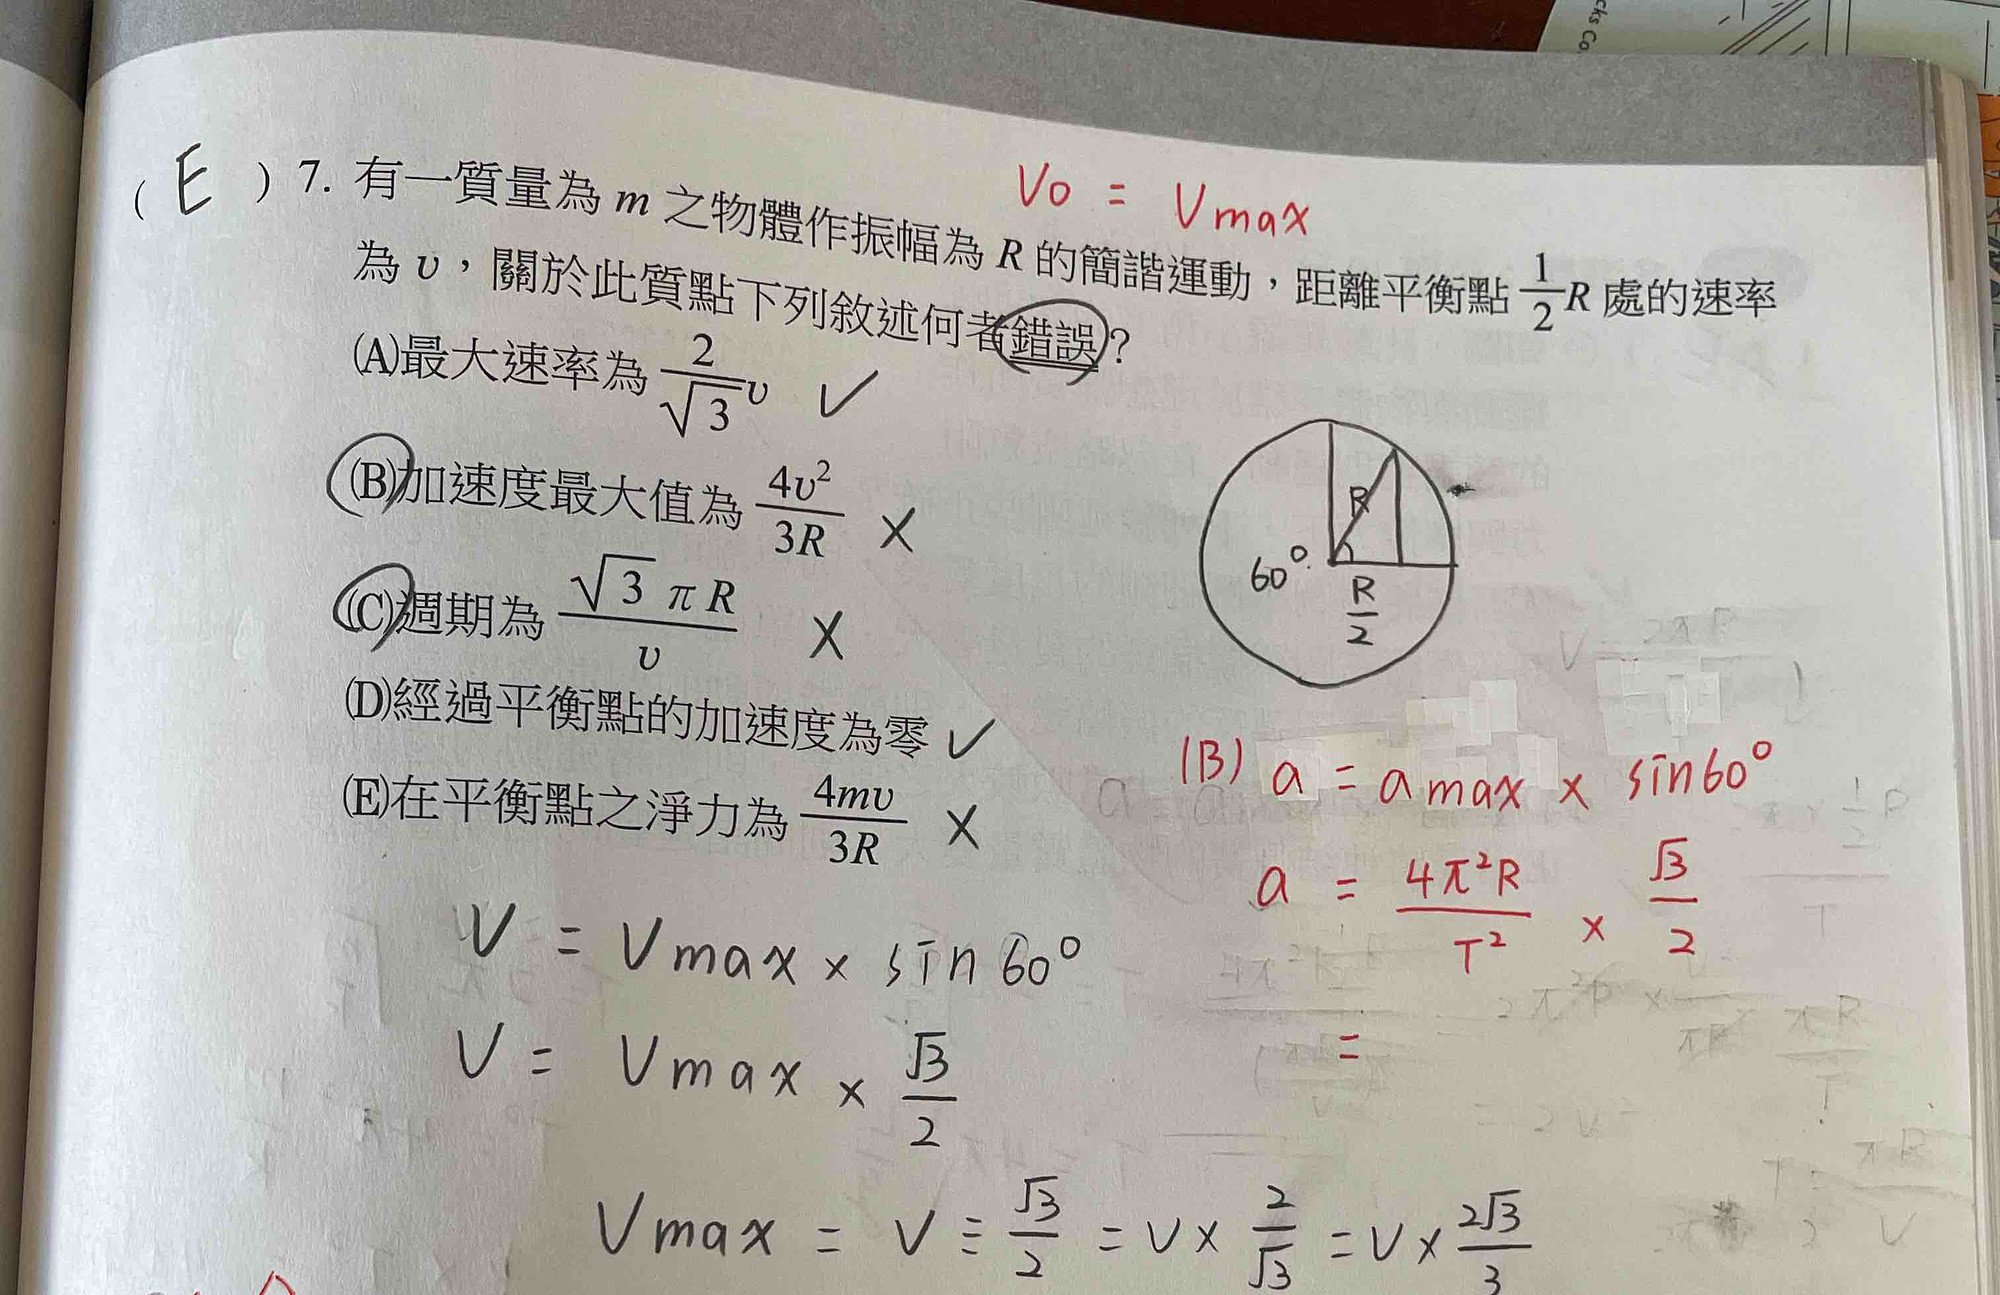 cks Co
V₀ = Vmax
( E ) 7. 有一質量為 m 之物體作振幅為 R 的簡諧運動，距離平衡點 1/2 R 處的速率
為 υ，關於此質點下列敘述何者錯誤？
(A)最大速率為 2/√3 υ ✓
(B)加速度最大值為 4υ²/3R ×
(C)週期為 √3 π R/υ ×
(D)經過平衡點的加速度為零 ✓
(E)在平衡點之淨力為 4mυ/3R ×
R
60°
R/2
(B) a = a max × sin60°
a = 4π²R/T² × √3/2
=
V = Vmax × sin 60°
V = Vmax × √3/2
Vmax = V ÷ √3/2 = V × 2/√3 = V × 2√3/3